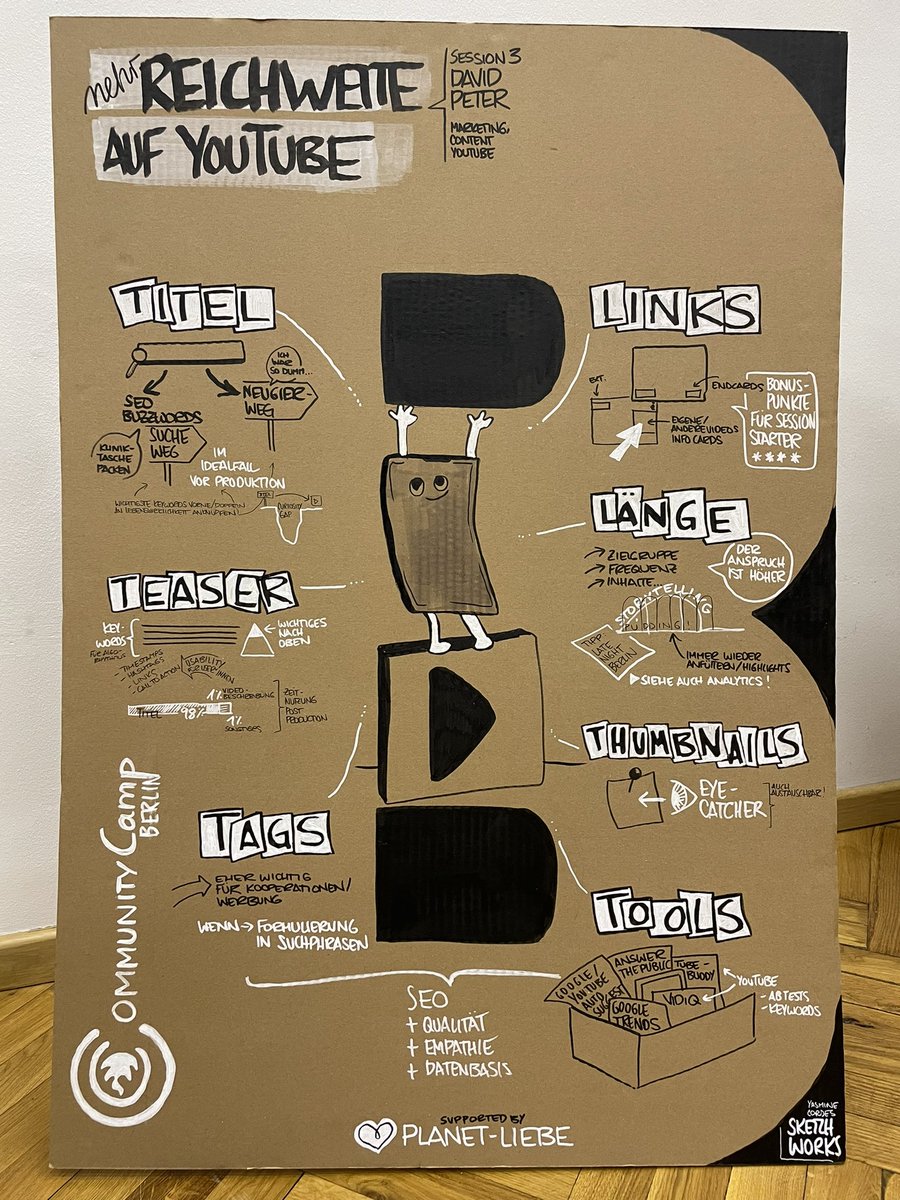 mehr REICHWEITE
AUF YOUTUBE
SESSION 3
DAVID
PETER
MARKETING,
CONTENT
YOUTUBE
TITEL
ICH
WAR
SO DUMM...
SEO
BUZZWORDS
NEUGIER-
WEG
SUCHE
WEG
KLINIK-
TASCHE
PACKEN
IM
IDEALFALL
VOR PRODUKTION
WICHTIGSTE KEYWORDS VORNE/DOPPELN
AN LEBENSWIRKLICHKEIT ANKNÜPFEN!
CURIOSITY
GAP
TEASER
KEY-
WORDS
FÜR ALGO-
RHYTHMUS
WICHTIGES
NACH
OBEN
- TIMESTAMPS
- HASHTAGS
- LINKS
- CALL TO ACTION
USABILITY
FÜR USER*INNEN
1% VIDEO-
BESCHREIBUNG
TITEL 98%
1%
SONSTIGES
ZEIT-
NUTZUNG
POST
PRODUCTION
TAGS
EHER WICHTIG
FÜR KOOPERATIONEN/
WERBUNG
WENN → FORMULIERUNG
IN SUCHPHRASEN
SEO
+ QUALITÄT
+ EMPATHIE
+ DATENBASIS
LINKS
EXT.
ENDCARDS
EIGENE/
ANDERE VIDEOS
INFO CARDS
BONUS-
PUNKTE
FÜR SESSION
STARTER
****
LÄNGE
→ ZIELGRUPPE
→ FREQUENZ
→ INHALTE...
DER
ANSPRUCH
IST HÖHER
STORYTELLING
PUDDING!
TIPP:
LATE
NIGHT
BERLIN
IMMER WIEDER
ANFÜTTERN/HIGHLIGHTS
SIEHE AUCH ANALYTICS!
THUMBNAILS
EYE-
CATCHER
AUCH
AUSTAUSCHBAR!
TOOLS
GOOGLE/
YOUTUBE
AUTO
SUGGEST
ANSWER
THE PUBLIC
TUBE-
BUDDY
VIDIQ
GOOGLE
TRENDS
YOUTUBE
- AB TESTS
- KEYWORDS
COMMUNITYCAMP
BERLIN
SUPPORTED BY
PLANET-LIEBE
YASMINE
CORDES
SKETCH
WORKS